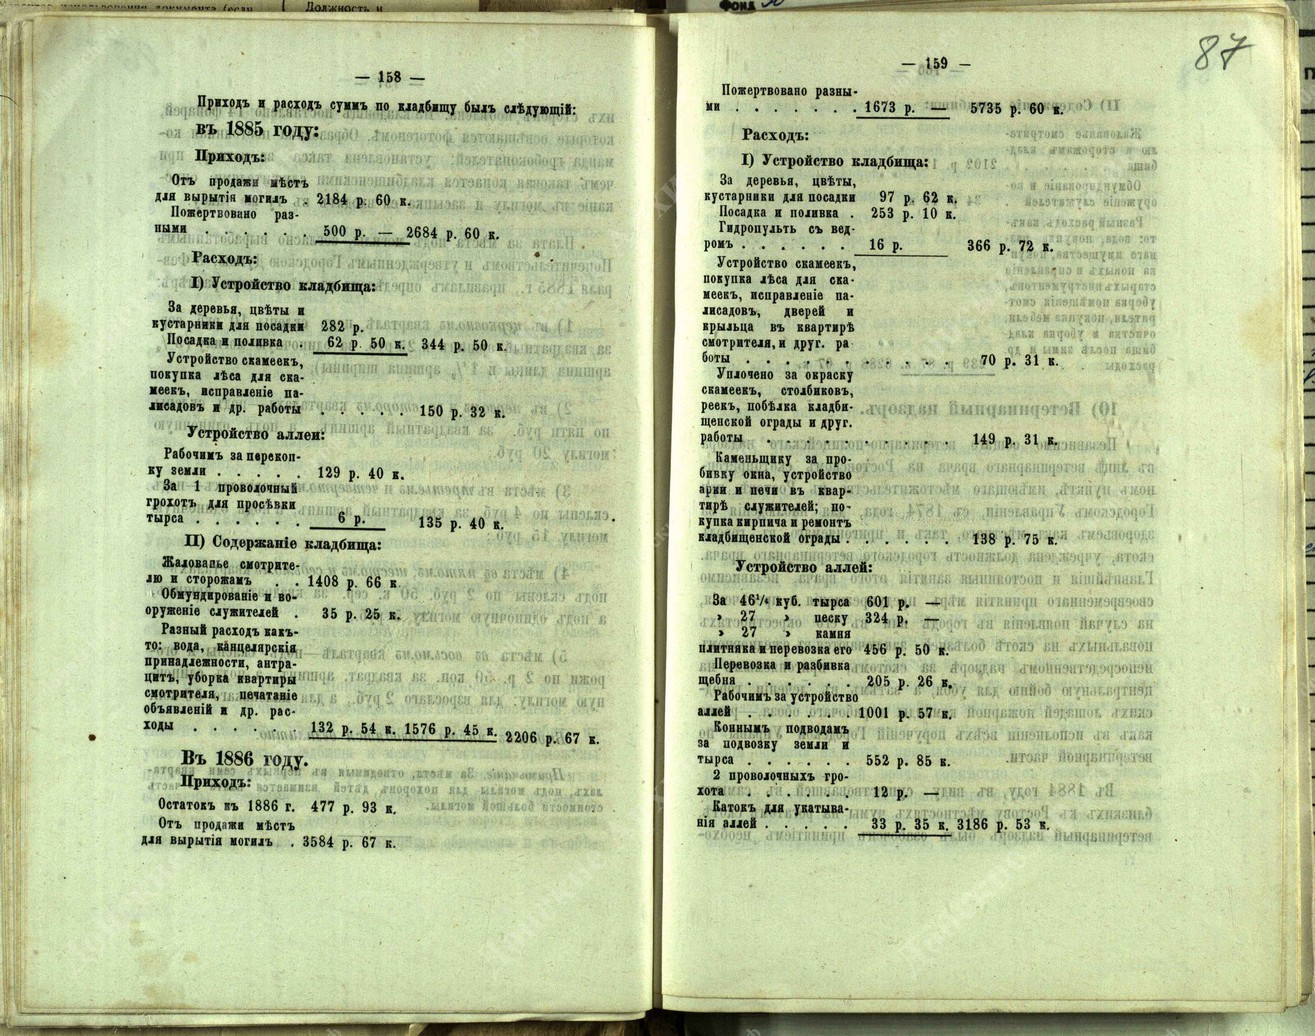 — 158 —
Приходъ и расходъ суммъ по кладбищу былъ слѣдующій:
въ 1885 году:
Приходъ:
Отъ продажи мѣстъ
для вырытія могилъ . 2184 р. 60 к.
Пожертвовано раз-
ными . . . . . . 500 р. — 2684 р. 60 к.
Расходъ:
I) Устройство кладбища:
За деревья, цвѣты и
кустарники для посадки 282 р.
Посадка и поливка . 62 р. 50 к. 344 р. 50 к.
Устройство скамеекъ,
покупка лѣса для ска-
меекъ, исправленіе па-
лисадовъ и др. работы . . . . . . 150 р. 32 к.
Устройство аллеи:
Рабочимъ за перекоп-
ку земли . . . . . 129 р. 40 к.
За 1 проволочный
грохотъ для просѣвки
тырса . . . . . . 6 р. 135 р. 40 к.
II) Содержаніе кладбища:
Жалованье смотрите-
лю и сторожамъ . . 1408 р. 66 к.
Обмундированіе и во-
оруженіе служителей . 35 р. 25 к.
Разный расходъ какъ-
то: вода, канцелярскія
принадлежности, антра-
цитъ, уборка квартиры
смотрителя, печатаніе
объявленій и др. рас-
ходы . . . . . . 132 р. 54 к. 1576 р. 45 к. 2206 р. 67 к.
Въ 1886 году.
Приходъ:
Остатокъ къ 1886 г. 477 р. 93 к.
Отъ продажи мѣстъ
для вырытія могилъ . 3584 р. 67 к.
— 159 —
87
Пожертвовано разны-
ми . . . . . . . 1673 р. — 5735 р. 60 к.
Расходъ:
I) Устройство кладбища:
За деревья, цвѣты,
кустарники для посадки 97 р. 62 к.
Посадка и поливка . 253 р. 10 к.
Гидропульть съ вед-
ромъ . . . . . . 16 р. 366 р. 72 к.
Устройство скамеекъ,
покупка лѣса для ска-
меекъ, исправленіе па-
лисадовъ, дверей и
крыльца въ квартирѣ
смотрителя, и друг. ра
боты . . . . . . . . . . . 70 р. 31 к.
Уплочено за окраску
скамеекъ, столбиковъ,
реекъ, побѣлка кладби-
щенской ограды и друг.
работы . . . . . . . . . . 149 р. 31 к.
Каменьщику за про-
бивку окна, устройство
арки и печи въ квар-
тирѣ служителей; по-
купка кирпича и ремонтъ
кладбищенской ограды . . . . . . 138 р. 75 к.
Устройство аллей:
За 46¼ куб. тырса 601 р. —
› 27 › песку 324 р. —
› 27 › камня
плитняка и перевозка его 456 р. 50 к.
Перевозка и разбивка
щебня . . . . . . 205 р. 26 к.
Рабочимъ за устройство
аллей . . . . . . 1001 р. 57 к.
Коннымъ подводамъ
за подвозку земли и
тырса . . . . . . 552 р. 85 к.
2 проволочныхъ гро-
хота . . . . . . . 12 р. —
Катокъ для укатыва-
нія аллей . . . . . 33 р. 35 к. 3186 р. 53 к.